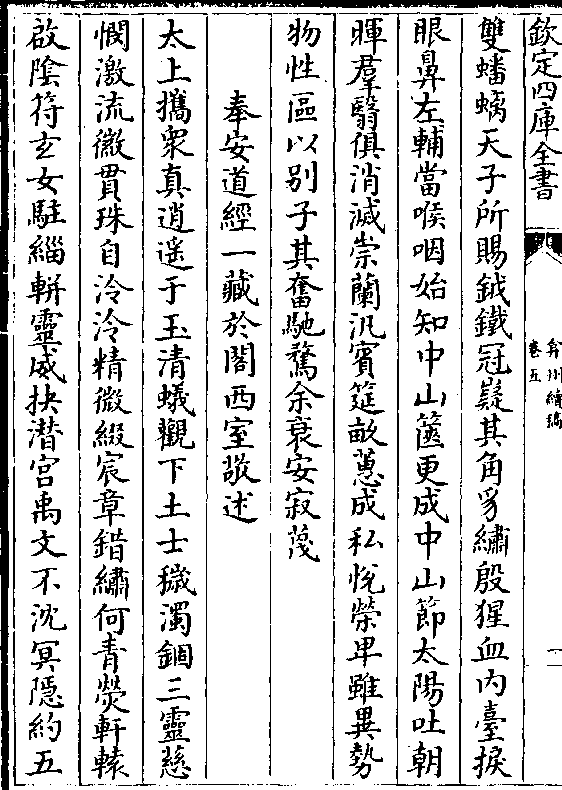 欽定四庫全書
弇州續稿
卷五
雙蟠螭天子所賜鉞鐵冠嶷其角豸繡殷猩血内臺捩
眼鼻左輔當喉咽始知中山篋更成中山節太陽吐朝
暉羣翳俱消滅崇蘭汎賓筵畝蕙成私悅榮卑雖異勢
物性區以别子其奮馳騖余衰安寂蔑
奉安道經一藏於閣西室敬述
太上攜衆真逍遥于玉清蟻觀下土士穢濁錮三靈慈
憫激流微貫珠自泠泠精微綴宸章錯繡何青熒軒轅
啟陰符玄女駐緇軿靈威抉潛宫禹文不沈冥隱約五